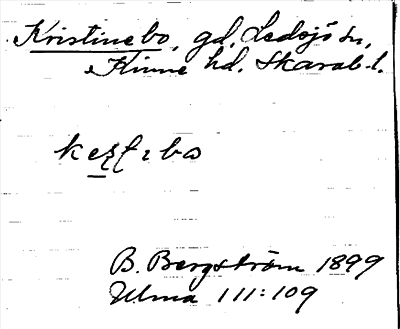 Kristinebo, gd, Ledsjö sn,
Kinne hd. Skarab. l.
B. Bergström 1899
Ulma 111:109